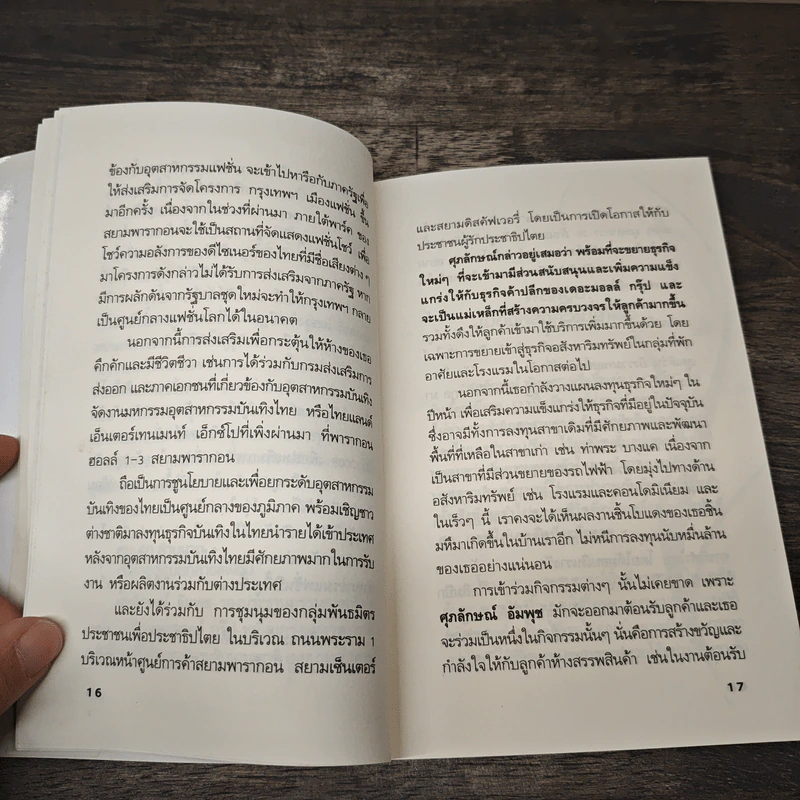 ข้องกับอุตสาหกรรมแฟชั่น จะเข้าไปหารือกับภาครัฐเพื่อ
ให้ส่งเสริมการจัดโครงการ กรุงเทพฯ เมืองแฟชั่น ขึ้น
มาอีกครั้ง เนื่องจากในช่วงที่ผ่านมา ภายใต้พาร์ค ของ
สยามพารากอนจะใช้เป็นสถานที่จัดแสดงแฟชั่นโชว์ เพื่อ
โชว์ความอลังการของดีไซเนอร์ของไทยที่มีชื่อเสียงต่าง ๆ
มาโครงการดังกล่าวไม่ได้รับการส่งเสริมจากภาครัฐ หาก
มีการผลักดันจากรัฐบาลชุดใหม่จะทำให้กรุงเทพฯ กลาย
เป็นศูนย์กลางแฟชั่นโลกได้ในอนาคต
นอกจากนี้การส่งเสริมเพื่อกระตุ้นให้ห้างของเธอ
คึกคักและมีชีวิตชีวา เช่นการได้ร่วมกับกรมส่งเสริมการ
ส่งออก และภาคเอกชนที่เกี่ยวข้องกับอุตสาหกรรมบันเทิง
จัดงานมหกรรมอุตสาหกรรมบันเทิงไทย หรือไทยแลนด์
เอ็นเตอร์เทนเมนท์ เอ็กซ์โปที่เพิ่งผ่านมา ที่พารากอน
ฮอลล์ 1-3 สยามพารากอน
ถือเป็นการชูนโยบายและเพื่อยกระดับอุตสาหกรรม
บันเทิงของไทยเป็นศูนย์กลางของภูมิภาค พร้อมเชิญชาว
ต่างชาติมาลงทุนธุรกิจบันเทิงในไทยนำรายได้เข้าประเทศ
หลังจากอุตสาหกรรมบันเทิงไทยมีศักยภาพมากในการรับ
งาน หรือผลิตงานร่วมกับต่างประเทศ
และยังได้ร่วมกับ การชุมนุมของกลุ่มพันธมิตร
ประชาชนเพื่อประชาธิปไตย ในบริเวณ ถนนพระราม 1
บริเวณหน้าศูนย์การค้าสยามพารากอน สยามเซ็นเตอร์
16
และสยามดิสคัฟเวอรี่ โดยเป็นการเปิดโอกาสให้กับ
ประชาชนผู้รักประชาธิปไตย
ศุภลักษณ์กล่าวอยู่เสมอว่า พร้อมที่จะขยายธุรกิจ
ใหม่ๆ ที่จะเข้ามามีส่วนสนับสนุนและเพิ่มความแข็ง
แกร่งให้กับธุรกิจค้าปลีกของเดอะมอลล์ กรุ๊ป และ
จะเป็นแม่เหล็กที่สร้างความครบวงจรให้ลูกค้ามากขึ้น
รวมทั้งดึงให้ลูกค้าเข้ามาใช้บริการเพิ่มมากขึ้นด้วย โดย
เฉพาะการขยายเข้าสู่ธุรกิจอสังหาริมทรัพย์ในกลุ่มที่พัก
อาศัยและโรงแรมในโอกาสต่อไป
นอกจากนี้เธอกำลังวางแผนลงทุนธุรกิจใหม่ๆ ใน
ปีหน้า เพื่อเสริมความแข็งแกร่งให้ธุรกิจที่มีอยู่ในปัจจุบัน
ซึ่งอาจมีทั้งการลงทุนสาขาเดิมที่มีศักยภาพและพัฒนา
พื้นที่ที่เหลือในสาขาเก่า เช่น ท่าพระ บางแค เนื่องจาก
เป็นสาขาที่มีส่วนขยายของรถไฟฟ้า โดยมุ่งไปทางด้าน
อสังหาริมทรัพย์ เช่น โรงแรมและคอนโดมิเนียม และ
ในเร็วๆ นี้ เราคงจะได้เห็นผลงานชิ้นโบแดงของเธอชิ้น
มหึมาเกิดขึ้นในบ้านเราอีก ไม่หนีการลงทุนนับหมื่นล้าน
ของเธออย่างแน่นอน
การเข้าร่วมกิจกรรมต่างๆ นั้นไม่เคยขาด เพราะ
ศุภลักษณ์ อัมพุช มักจะออกมาต้อนรับลูกค้าและเธอ
จะร่วมเป็นหนึ่งในกิจกรรมนั้นๆ นั่นคือการสร้างขวัญและ
กำลังใจให้กับลูกค้าห้างสรรพสินค้า เช่นในงานต้อนรับ
17